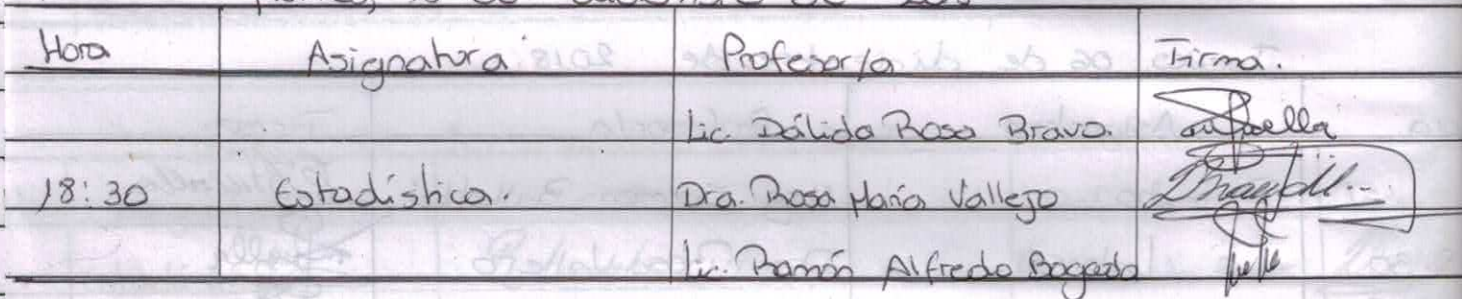 Hora Asignatura Profesor/a Firma.
Lic. Dálida Rosa Bravo.
18:30 Estadística. Dra. Rosa María Vallejo
Lic. Ramón Alfredo Bogado